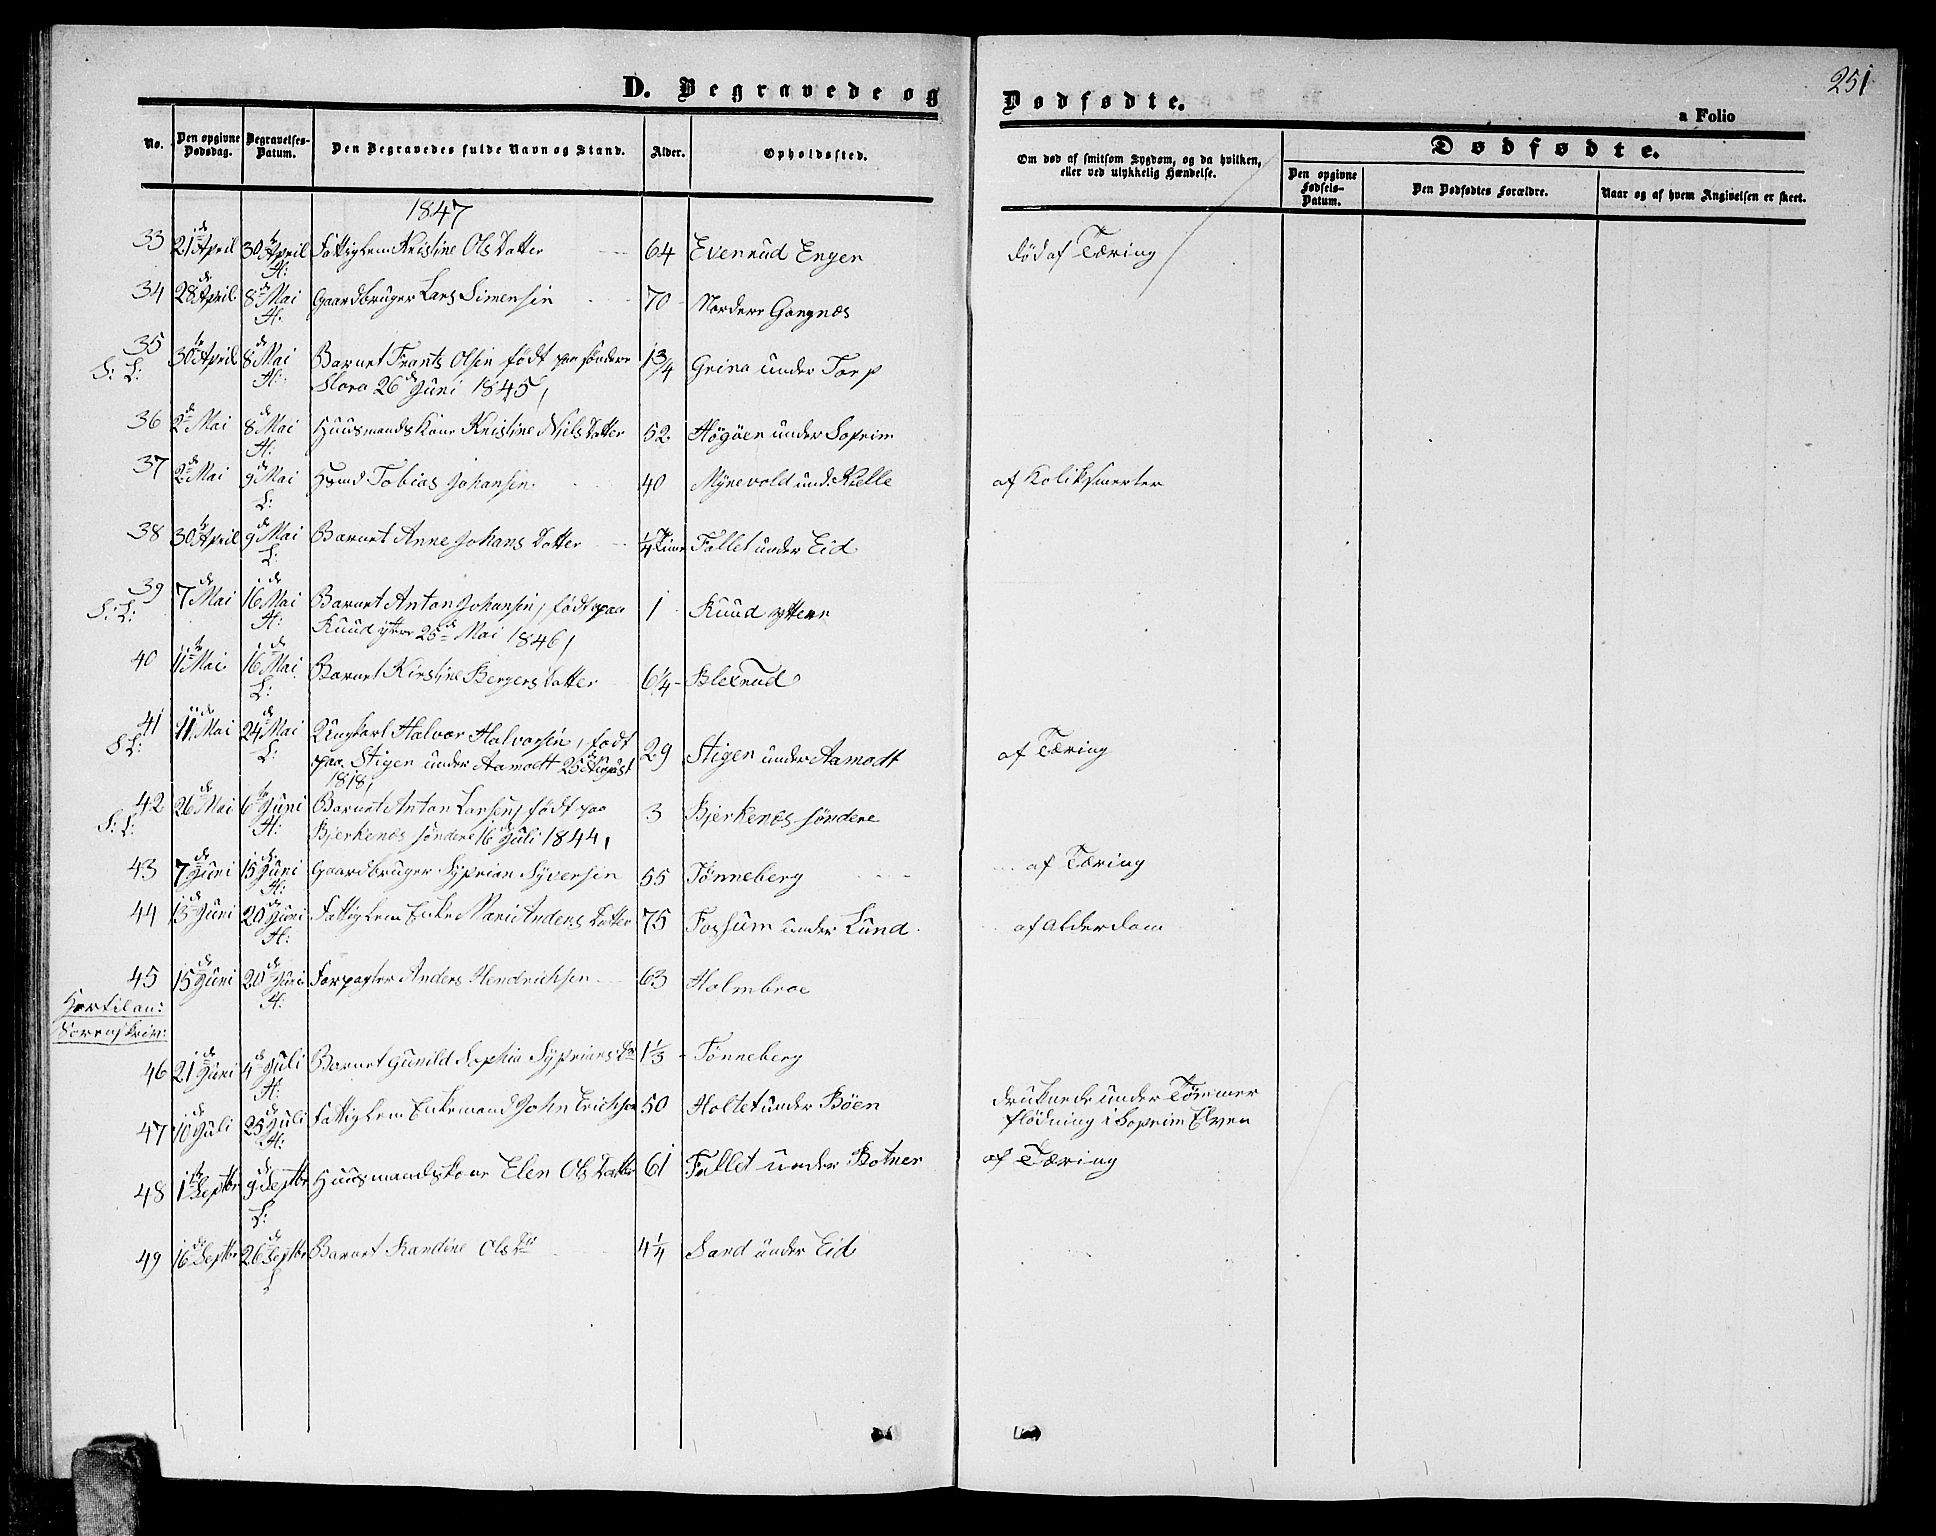 251
D. Begravede og Dødfødte.
a Folio
No. Den opgivne Dødsdag. Begravelses-Datum. Den Begravedes fulde Navn og Stand. Alder. Opholdssted. Om død af smitsom Sygdom, og da hvilken, eller ved ulykkelig Hændelse. Dødfødte.
Den opgivne Fødsels-Datum. Den Dødfødtes Forældre. Naar og af hvem Angivelsen er skeet.
1847
33 21de April 30te April Fattiglem Kristine Ols Datter 64 Evenrud Engen død af Tæring
H:
34 28de April 8de Mai Gaardbruger Lars Simensen 70 Nordere Gangnæs
H:
35 30te April 8de Mai Barnet Frantz Olsen født paa søndere 1 3/4 Grina under Torp
S: L: H: Slora 26de Juni 1845,
36 2de Mai 8de Mai Huusmands Kone Kristine Niels Datter 52 Högöen under Soprim
H:
37 2de Mai 9de Mai Hsmd Tobias Johansen 40 Mÿrevold und. Kulle af Koliksmerter
L:
38 30te April 9de Mai Barnet Anne Johans Datter 1/4 Time Fallet under Eid
L:
39 7de Mai 16de Mai Barnet Anton Johansen, født paa 1 Ruud yttere
S: L: H: Ruud ytre 25de Mai 1846,
40 11te Mai 16de Mai Barnet Kirstine Bergers Datter 6 1/4 Blexrud
L:
41 11de Mai 24de Mai Ungkarl Halvor Halvorsen, født 29 Stigen under Aamodt af Tæring
S L: L: paa Stigen under Aamodt 25de August
1818,
42 26de Mai 6te Juni Barnet Anton Larsen, født paa 3 Bjerkenæs søndere
S: L: H: Bjerkenæs søndere 16de Juli 1844,
43 7de Juni 15de Juni Gaardbruger Syprian Syversen 55 Tönneberg af Tæring
H:
44 13de Juni 20de Juni Fattiglem Enke Marie Anders Datter 75 Fossum under Lund af Alderdom
H:
45 15de Juni 20de Juni Forpagter Anders Hendrichsen 63 Holmbroe
H:
Hertil an:
Sorenskriv:
46 21de Juni 4de Juli Barnet Gunild Sophia Syprians Dtr 1 1/3 Tønneberg
H:
47 10de Juli 25de Juli Fattiglem Enkemand John Erichsen 50 Holtet under Böen druknede under Tömmer
H: flödning i Soprim Elven
48 1te Septbr 9de Septbr Huusmandskone Elen Ols Datter 61 Fallet under Botner af Tæring
L:
49 16de Septbr 26de Septbr Barnet Randine Ols Dtr 4 1/4 Sand under Eid
L